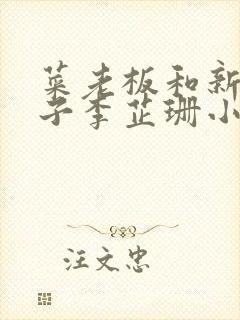 菜老板和新
子李芷珊小
汪文忠